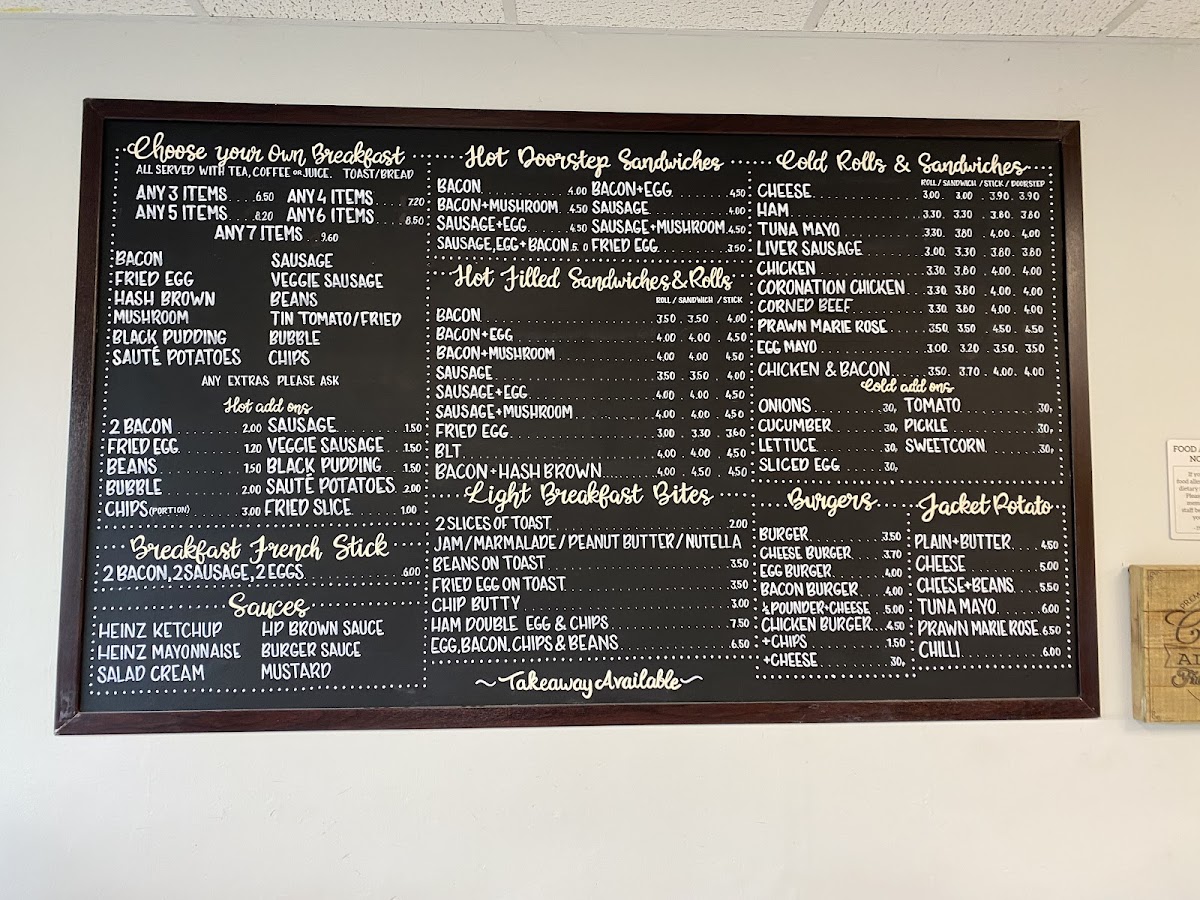 Choose your Own Breakfast
ALL SERVED WITH TEA, COFFEE OR JUICE. TOAST/BREAD
ANY 3 ITEMS 6.50 ANY 4 ITEMS 7.20
ANY 5 ITEMS 8.20 ANY 6 ITEMS 8.50
ANY 7 ITEMS 9.60
BACON SAUSAGE
FRIED EGG VEGGIE SAUSAGE
HASH BROWN BEANS
MUSHROOM TIN TOMATO/FRIED
BLACK PUDDING BUBBLE
SAUTÉ POTATOES CHIPS
ANY EXTRAS PLEASE ASK
Hot add ons
2 BACON 2.00 SAUSAGE 1.50
FRIED EGG 1.20 VEGGIE SAUSAGE 1.50
BEANS 1.50 BLACK PUDDING 1.50
BUBBLE 2.00 SAUTÉ POTATOES 2.00
CHIPS (PORTION) 3.00 FRIED SLICE 1.00
Breakfast French Stick
2 BACON, 2 SAUSAGE, 2 EGGS 6.00
Sauces
HEINZ KETCHUP HP BROWN SAUCE
HEINZ MAYONNAISE BURGER SAUCE
SALAD CREAM MUSTARD
Hot Doorstep Sandwiches
BACON 4.00 BACON+EGG 4.50
BACON+MUSHROOM 4.50 SAUSAGE 4.00
SAUSAGE+EGG 4.50 SAUSAGE+MUSHROOM 4.50
SAUSAGE, EGG+BACON 5. 0 FRIED EGG 3.50
Hot Filled Sandwiches & Rolls
ROLL / SANDWICH / STICK
BACON 3.50 3.50 4.00
BACON+EGG 4.00 4.00 4.50
BACON+MUSHROOM 4.00 4.00 4.50
SAUSAGE 3.50 3.50 4.00
SAUSAGE+EGG 4.00 4.00 4.50
SAUSAGE+MUSHROOM 4.00 4.00 4.50
FRIED EGG 3.00 3.30 3.60
BLT 4.00 4.00 4.50
BACON+HASH BROWN 4.00 4.50 4.50
Light Breakfast Bites
2 SLICES OF TOAST 2.00
JAM/MARMALADE/PEANUT BUTTER/NUTELLA
BEANS ON TOAST 3.50
FRIED EGG ON TOAST 3.50
CHIP BUTTY 3.00
HAM DOUBLE EGG & CHIPS 7.50
EGG, BACON, CHIPS & BEANS 6.50
~Takeaway Available~
Cold Rolls & Sandwiches
ROLL / SANDWICH / STICK / DOORSTEP
CHEESE 3.00 3.00 3.90 3.90
HAM 3.30 3.30 3.80 3.80
TUNA MAYO 3.30 3.80 4.00 4.00
LIVER SAUSAGE 3.00 3.30 3.80 3.80
CHICKEN 3.30 3.80 4.00 4.00
CORONATION CHICKEN 3.30 3.80 4.00 4.00
CORNED BEEF 3.30 3.80 4.00 4.00
PRAWN MARIE ROSE 3.50 3.50 4.50 4.50
EGG MAYO 3.00 3.20 3.50 3.50
CHICKEN & BACON 3.50 3.70 4.00 4.00
Cold add ons
ONIONS 30p TOMATO 30p
CUCUMBER 30p PICKLE 30p
LETTUCE 30p SWEETCORN 30p
SLICED EGG 30p
Burgers
BURGER 3.50
CHEESE BURGER 3.70
EGG BURGER 4.00
BACON BURGER 4.00
¼ POUNDER+CHEESE 5.00
CHICKEN BURGER 4.50
+CHIPS 1.50
+CHEESE 30p
Jacket Potato
PLAIN+BUTTER 4.50
CHEESE 5.00
CHEESE+BEANS 5.50
TUNA MAYO 6.00
PRAWN MARIE ROSE 6.50
CHILLI 6.00
FOOD